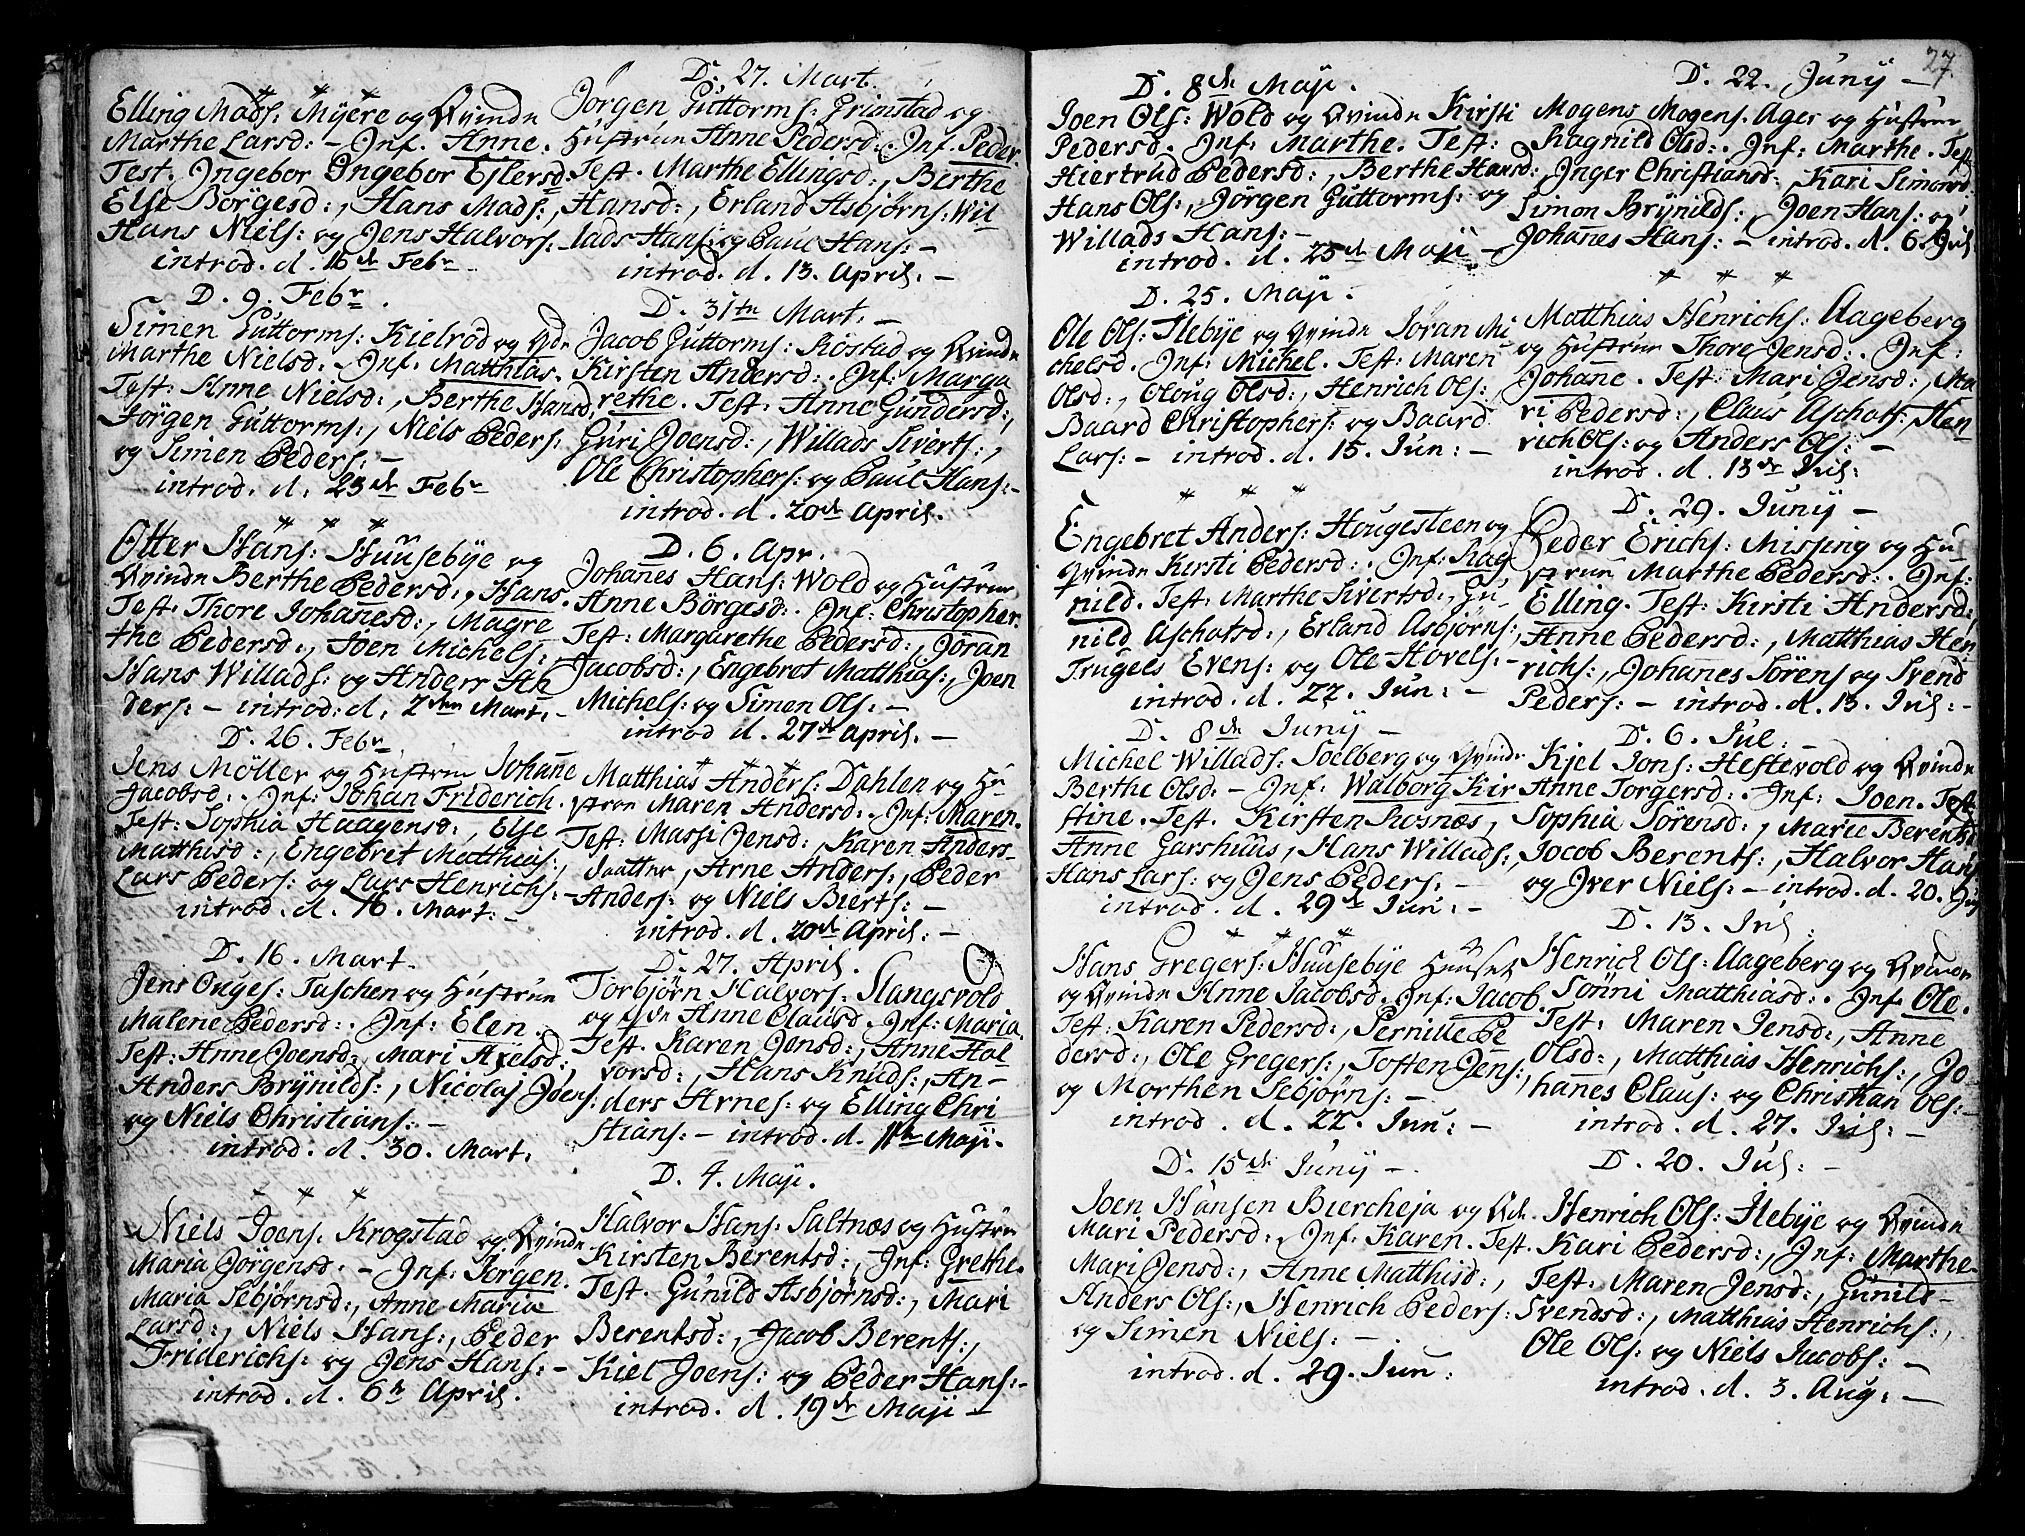 * * *
Elling Mads: Myere og Qvinde
Marthe Larsd: - Inf. Anne.
Test. Ingebor Ingebor Ejlersd:
Else Börgesd:, Hans Mads:,
Hans Niels: og Jens Halvors:
introd. d. 16de Febr
D. 9. Febr.
Simen Guttorms: Kielröd og Qde
Marthe Nielsd. Inf. Matthias.
Test: Anne Nielsd:, Berthe Hansd,
Jörgen Guttorms:, Niels Peders:
og Simen Peders: -
introd. d. 23de Febr
* * *
Otter Hans: Huusebÿe og
Qvinde Berthe Pedersd., Hans.
Test. Thore Johanesd:, Magre
the Pedersd:, Joen Michels:
Hans Willads: og Anders An
ders: - introd: d. 2den Mart. -
D. 26. Febr
Jens Möller og Hustrue Johane
Jacobsd:. Inf: Johan Friderich.
Test: Sophia Haagensd:, Else
Matthisd:, Engebret Matthias:,
Lars Peders: og Lars Henrichs:
introd. d. 16. Mart: -
D. 16. Mart.
Jens Ouges: Taschen og Hustrue
Malene Pedersd:. Inf: Elen.
Test: Anne Joensd: Mari Axelsd:,
Anders Brÿnilds:, Nicolas Joens:
og Niels Christians: -
introd. d. 30. Mart.
* * *
Niels Joens. Krogstad og Qvinde
Maria Jörgensd. - Inf: Jörgen.
Maria Sebjörnsd:, Anne Maria
Larsd:, Niels Hans:, Peder
Friderichs: og Jens Hans: -
introd. d. 6te April.
D. 27. Mart.
Jörgen Guttorms: Grimstad og
Hustrue Anne Pedersd: Inf. Peder.
Test. Marthe Ellingsd:, Berthe
Hansd:, Erland Asbjörns: Wil
lads Hans: og Paul Hans: -
introd. d. 13. April: -
D. 31te Mart. -
Jacob Guttorms: Rostad og Qvinde
Kirsten Andersd:. Inf: Marga
rethe. Test: Anne Gundersd:,
Guri Joensd:, Willads Siverts:,
Ole Christophers: og Paul Hans: -
introd. d. 20de April.
D. 6. Apr.
Johanes Hans: Wold og Hustrue
Anne Börgesd:. Inf: Christopher.
Test: Margarethe Pedersd:, Jöran
Jacobsd:, Engebret Matthias:, Joen
Michels: og Simen Ols: -
introd d. 27de April. -
* * *
Matthias Anders: Dahlen og Hu
strue Maren Andersd:. Inf: Maren.
Test: Massi Jensd:, Karen Anders-
daatter, Arne Anders:, Peder
Anders: og Niels Bierts: -
introd. d. 20de April: -
D. 27. April.
Torbjörn Halvors: Slangsvold
og Qde Anne Clausd. Inf: Maria.
Test. Karen Jensd:, Anne Hal
vorsd:, Hans Knuds:, An-
ders Arnes: og Elling Chri
stians: - introd. d. 11te Maji.
D. 4. Maji.
Halvor Hans: Saltnæs og Hustrue
Kirsten Berentsd:, Inf: Grethe.
Test. Gunild Asbjörnsd:, Mari
Berentsd:, Jacob Berents:,
Kiel Joens: og Peder Hans: -
introd. d. 19de Maji -
27.
D. 8de Maji.
Joen Ols: Wold og Qvinde Kirsti
Pedersd. Inf: Marthe. Test:
Hiertrud Pedersd:, Berthe Hansd:,
Hans Ols:, Jörgen Guttorms: og
Willads Hans: -
introd. d. 25de Maji -
D. 25. Maji.
Ole Ols: Ilebÿe og Qvinde Jöran Mi
chelsd. Inf: Michel. Test: Maren
Olsd:, Oloug Olsd:, Henrich Ols:,
Baard Christophers: og Baard
Lars: - introd. d. 15. Jun: -
* * *
Engebret Anders: Hougesteen og
Qvinde Kirsti Pedersd:. Inf: Rag
nild. Test: Marthe Sivertsd:, Gu-
nild Aschatsd:, Erland Asbjörns:,
Trugels Evens: og Ole Hovels: -
introd. d. 22. Jun: -
D. 8de Junij -
Michel Willads: Soelberg og Qvinde
Berthe Olsd: - Inf: Walborg Kir
stine. Test. Kirsten Rosnæs,
Anne Garshuus, Hans Willads:,
Hans Lars: og Jens Peders: -
introd. d. 29de Jun: -
* * *
Hans Gregers: Huusebÿe Huuset
og Qvinde Anne Jacobsd. Inf: Jacob.
Test: Karen Pedersd:, Pernille Pe
dersd:, Ole Gregers:, Toften Jens:,
og Morthen Sebjörns: -
introd. d. 22. Jun: -
D. 15de Junij -
Joen Hansen Biercheja og Qde.
Mari Pedersd:. Inf: Karen. Test.
Mari Jensd:, Anne Matthisd:,
Anders Ols:, Henrich Peders:
og Simen Niels: -
introd. d. 29. Jun:
D. 22. Junij -
Mogens Mogens. Ager og Hustrue
Ragnild Olsd:. Inf: Marthe. Test:
Inger Christiansd:, Kari Simonsd.
Simon Brÿnilds:, Joen Hans: og
Johanes Hans: - introd. d. 6. Jul:
* * *
Matthias Henrichs: Aageberg
og Hustrue Thore Jensd:. Inf:
Johane. Test: Mari Jensd:, Ma
ri Pedersd:, Claus Aschats:, Hen
rich Ols: og Anders Ols: -
introd. d. 13de Jul:
D. 29. Junij -
Peder Erichs: Missing og Hu
strue Marthe Pedersd:. Inf:
Elling. Test: Kirsti Andersd:,
Anne Pedersd:, Matthias Hen
richs:, Johanes Sörens og Svend
Peders: - introd. d. 13. Jul: -
D. 6. Jul: -
Kjel Jons: Hestevold og Qvinde
Anne Torgersd:. Inf: Joen. Test.
Sophia Sörensd:, Marie Berentsd.
Jocob Berents:, Halvor Hans
og Iver Niels: - introd. d. 20. Jul
D. 13. Jul:
Henrich Ols: Aageberg og Qvinde
Sönni Matthiasd:. Inf. Ole.
Test. Maren Jensd:, Anne
Olsd:, Matthias Henrichs:, Jo
hanes Claus: og Christian Ols: -
introd. d. 27. Jul: -
D. 20. Jul: -
Henrich Ols: Ilebÿe og Qvinde
Kari Pedersd:, Inf: Marthe.
Test: Maren Jensd:, Gunild
Svendsd:, Matthias Henrichs:,
Ole Ols: og Niels Jacobs: -
introd. d. 3. Aug: -